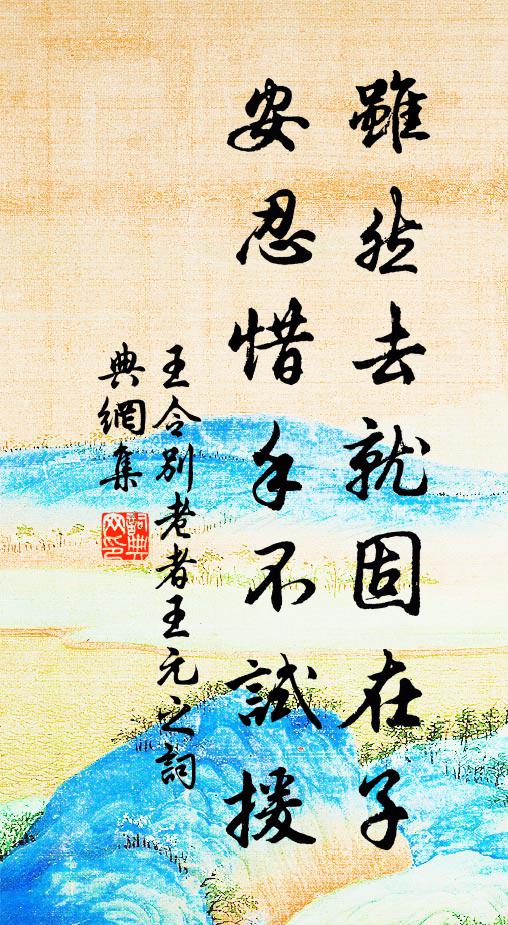 雖然去就固在子
安忍惜手不試援
王令別老者王元之詞
典網集
詞典
网印